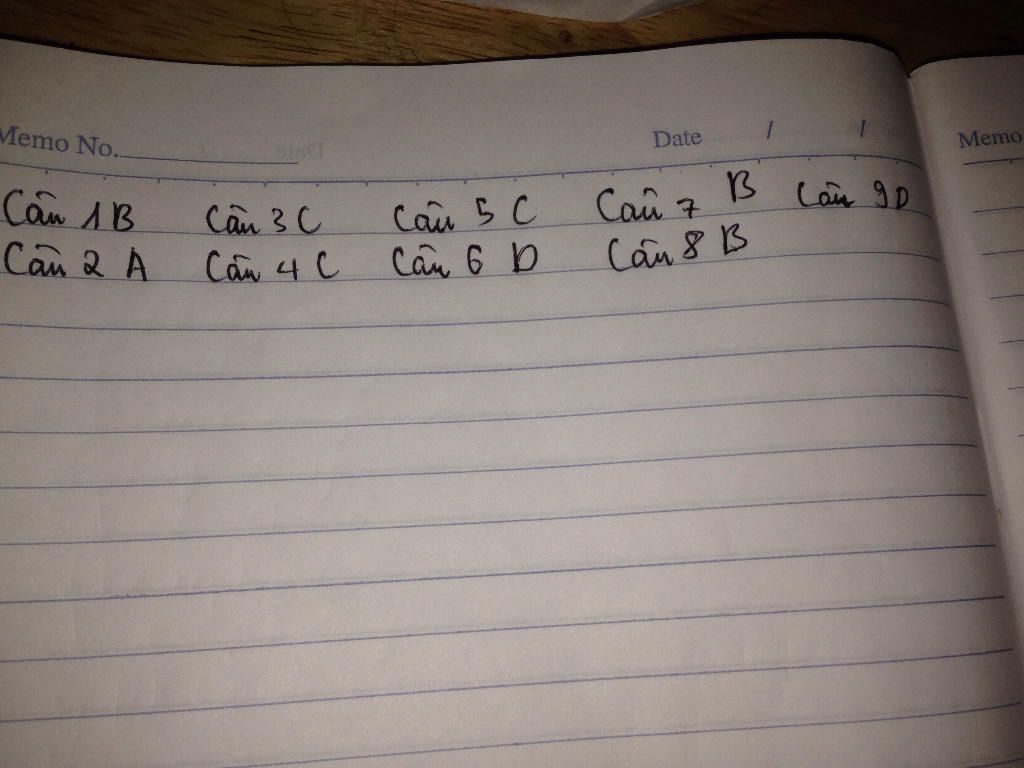 Memo No. Date / /
Câu 1 B Câu 3 C Câu 5 C Câu 7 B Câu 9 D
Câu 2 A Câu 4 C Câu 6 D Câu 8 B
Memo